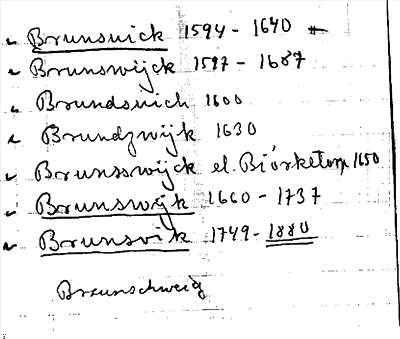 " Brunsvick 1594 - 1640
" Brunswijck 1597 - 1687
" Brundsvich 1600
" Brundzwijk 1630
" Brunsswijck el. Biörketorp 1650
" Brunswijk 1660 - 1737
" Brunsvik 1749 - 1880
Braunschweig